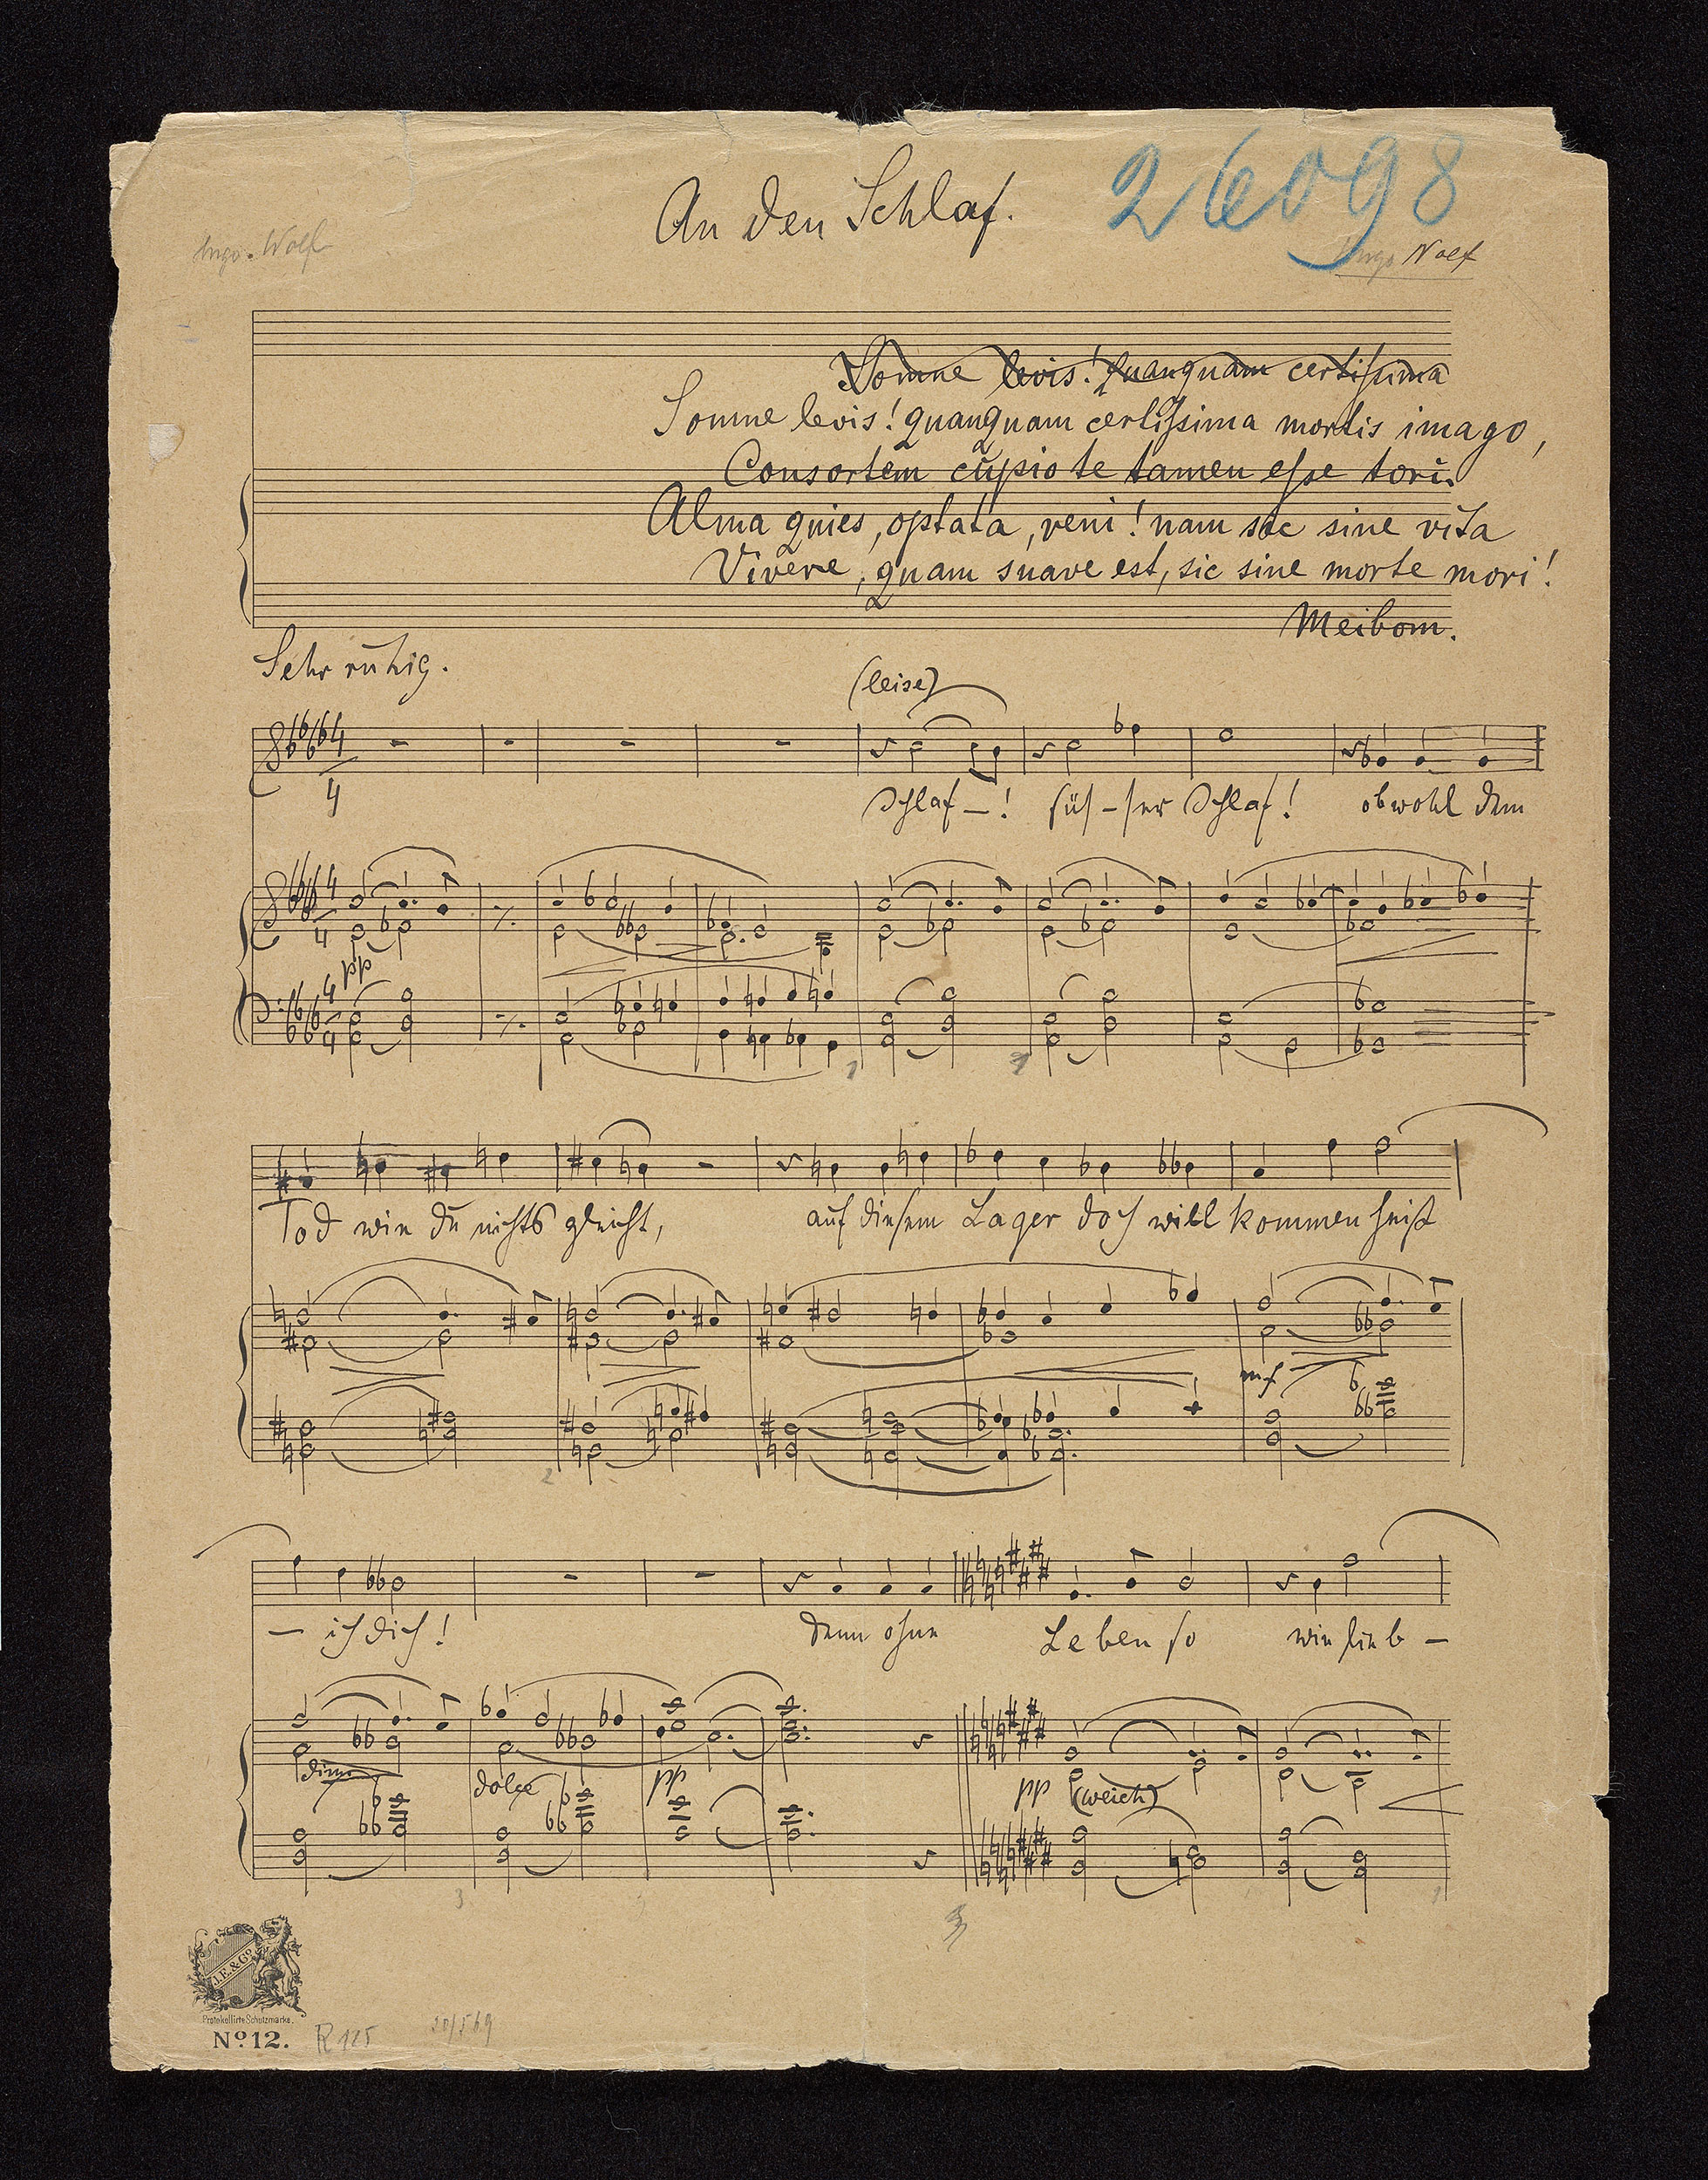 An den Schlaf.
26098
Hugo Wolf
Hugo Wolf
Somne levis! quanquam certissima
Somne levis! quanquam certissima mortis imago,
Consortem cupio te tamen esse tori.
Alma quies, optata, veni! nam sic sine vita
Vivere, quam suave est, sic sine morte mori!
Meibom.
Sehr ruhig.
(leise)
Schlaf–! süs-ser Schlaf! obwohl dem
pp
Tod wie du nichts gleicht, auf diesem Lager doch willkommen heiß
mf
– ich dich! denn ohne Leben so wie lieb –
dim.
dolce
pp
pp (weich)
J.E.&Co.
Protokollirte Schutzmarke.
No. 12.
R 125